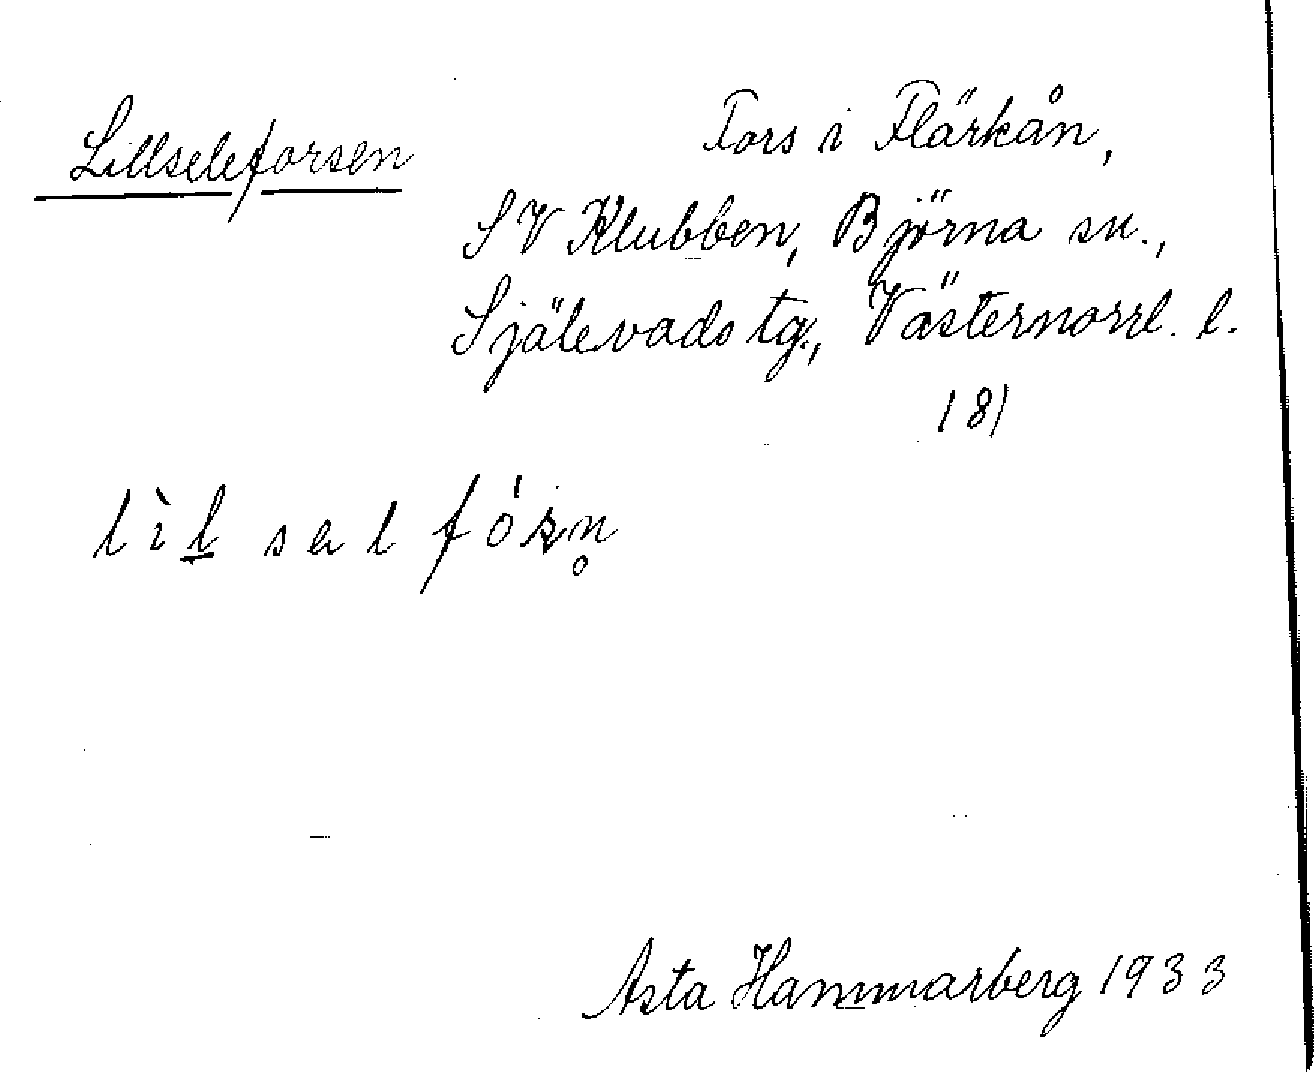 Lillseleforsen
Fors i Flärkån,
SV Klubben, Björna sn.,
Själevads tg., Västernorrl. l.
181
lìl sel fórn̥
Asta Hammarberg 1933